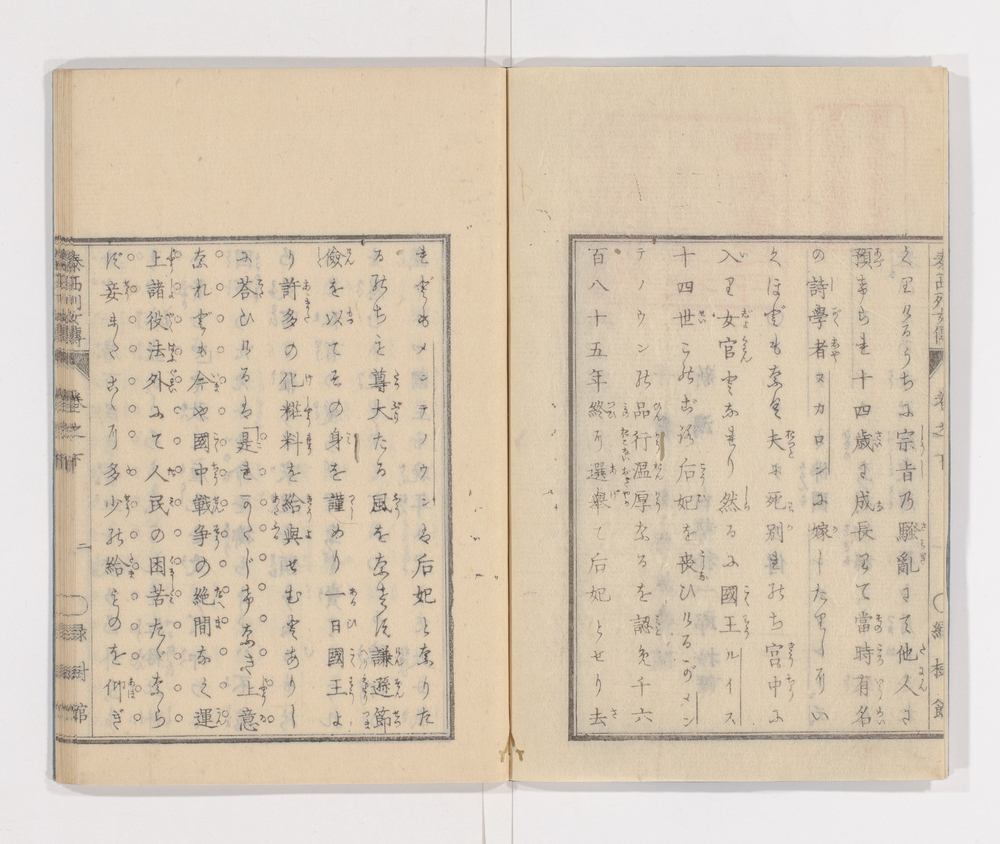 泰西列女傳 卷之下
くりけるうちに宗旨の騒亂にて他人に
預けられ十四歳に成長して當時有名
の詩學者スカロンに嫁したりしがい
くほどもなく夫に死別れのち宮中に
入り女官となれり然るに國王ルイス
十四世このごろ后妃を喪ひけるがメン
テノウンの品行温厚なるを認め千六
百八十五年終に選舉て后妃とせり去
れどもメンテノウンは后妃となりた
るのちも尊大たる風をなさず謙遜節
儉を以てその身を謹めり一日國王よ
り許多の化粧料を給與せむとありし
に答ひけるは「是れかたじけなき上意
なれども今や國中戦争の絶間なく運
上諸役法外にて人民の困苦たゞなら
ず妾 多少の給ものを仰ぎ
泰西列女傳 卷之下 二